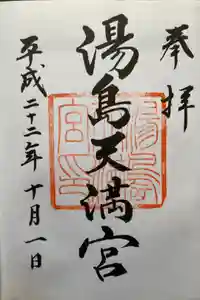 奉拝
湯島天満宮
平成二十二年十月一日
湯島天満宮印